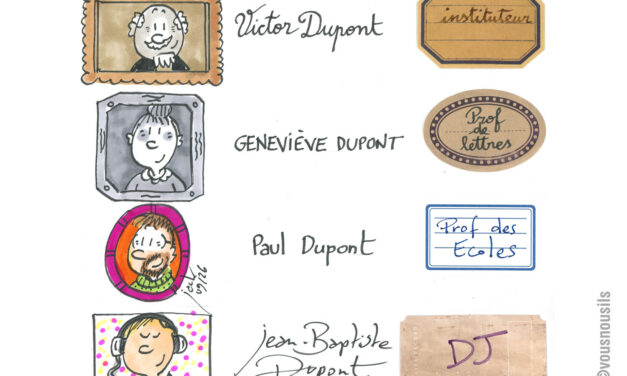 Victor Dupont
instituteur
GENEVIÈVE DUPONT
Prof
de
lettres
Paul Dupont
Prof des
Ecoles
09/26
Jean-Baptiste
Dupont
DJ
@vousnousils